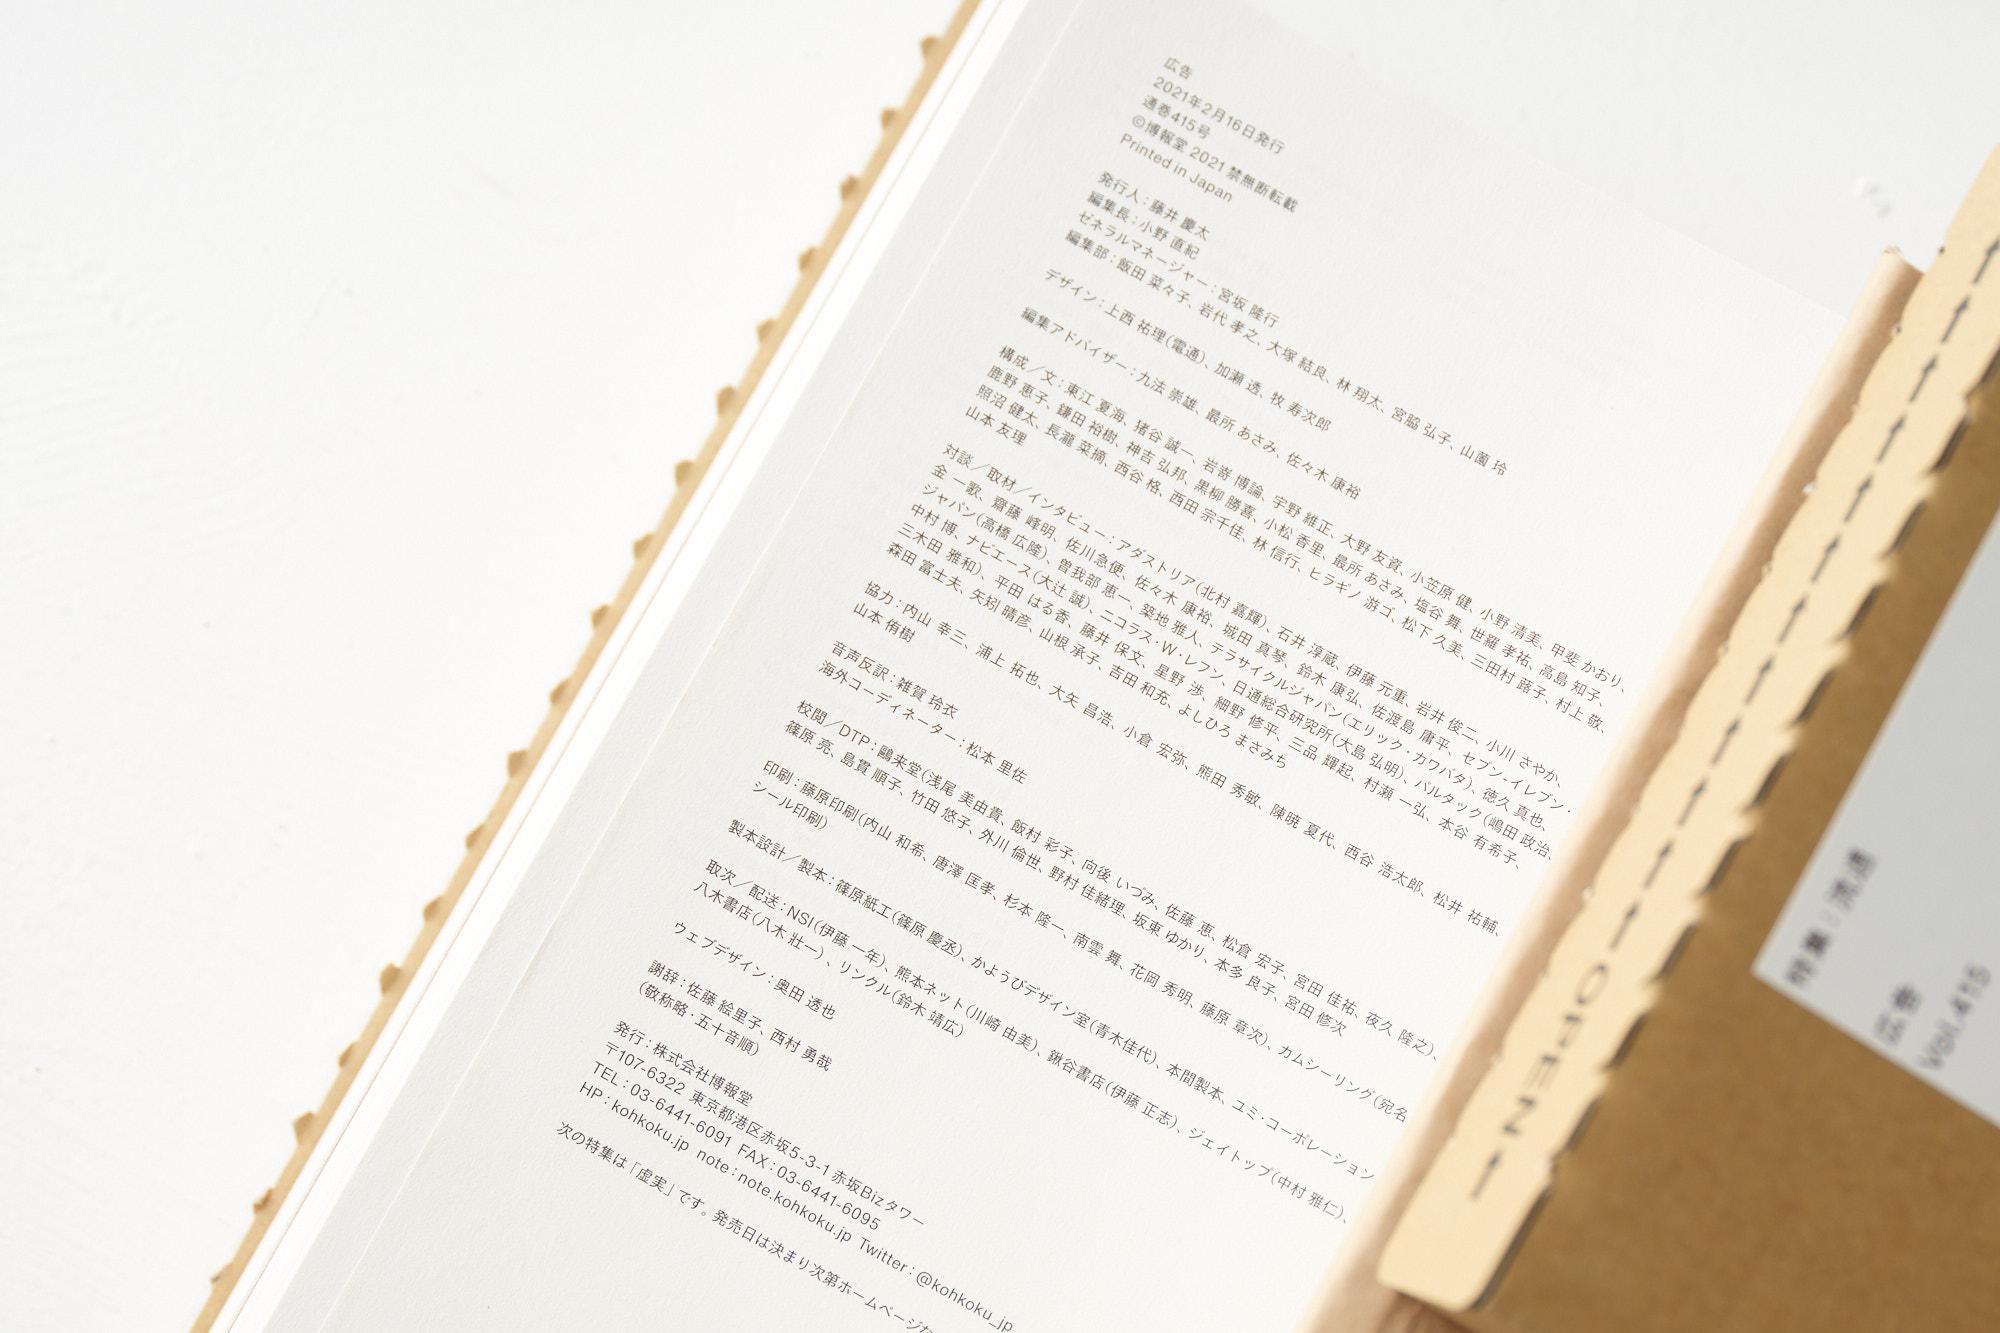 広告
2021年2月16日発行
通巻415号
©博報堂 2021 禁無断転載
Printed in Japan
発行人：藤井 慶太
編集長：小野 直紀
ゼネラルマネージャー：宮坂 隆行
編集部：飯田 菜々子、岩代 孝之、大塚 結良、林 翔太、宮脇 弘子、山薗 玲
デザイン：上西 祐理（電通）、加瀬 透、牧 寿次郎
編集アドバイザー：九法 崇雄、最所 あさみ、佐々木 康裕
構成／文：東江 夏海、猪谷 誠一、岩嵜 博論、宇野 維正、大野 友資、小笠原 健、小野 清美、甲斐 かおり、
鹿野 恵子、鎌田 裕樹、神吉 弘邦、黒柳 勝喜、小松 香里、最所 あさみ、塩谷 舞、世羅 孝祐、高島 知子、
照沼 健太、長瀧 菜摘、西谷 格、西田 宗千佳、林 信行、ヒラギノ 游ゴ、松下 久美、三田村 蕗子、村上 敬、
山本 友理
対談／取材／インタビュー：アダストリア（北村 嘉輝）、石井 淳蔵、伊藤 元重、岩井 俊二、小川 さやか、
金 一歌、齋藤 峰明、佐川急便、佐々木 康裕、城田 真琴、鈴木 康弘、佐渡島 庸平、セブン‐イレブン・
ジャパン（高橋 広隆）、曽我部 恵一、築地 雅人、テラサイクルジャパン（エリック・カワバタ）、徳久 真也、
中村 博、ナビエース（大辻 誠）、ニコラス・W・レフン、日通総合研究所（大島 弘明）、パルタック（嶋田 政治、
三木田 雅和）、平田 はる香、藤井 保文、星野 渉、細野 修平、三品 輝起、村瀬 一弘、本谷 有希子、
森田 富士夫、矢矧 晴彦、山根 承子、吉田 和充、よしひろ まさみち
協力：内山 幸三、浦上 拓也、大矢 昌浩、小倉 宏弥、熊田 秀敏、陳暁 夏代、西谷 浩太郎、松井 祐輔、
山本 侑樹
音声反訳：雑賀 玲衣
海外コーディネーター：松本 里佐
校閲／DTP：鷗来堂（浅尾 美由貴、飯村 彩子、向後 いづみ、佐藤 恵、松倉 宏子、宮田 佳祐、夜久 隆之）、
篠原 亮、島貫 順子、竹田 悠子、外川 倫世、野村 佳緒理、坂東 ゆかり、本多 良子、宮田 修次
印刷：藤原印刷（内山 和希、唐澤 匡孝、杉本 隆一、南雲 舞、花岡 秀明、藤原 章次）、カムシーリング（宛名
シール印刷）
製本設計／製本：篠原紙工（篠原 慶丞）、かようびデザイン室（青木佳代）、本間製本、ユミ・コーポレーション
取次／配送：NSI（伊藤 一年）、熊本ネット（川崎 由美）、鍬谷書店（伊藤 正志）、ジェイトップ（中村 雅仁）、
八木書店（八木 壯一）、リンクル（鈴木 靖広）
ウェブデザイン：奥田 透也
謝辞：佐藤 絵里子、西村 勇哉
（敬称略・五十音順）
発行：株式会社博報堂
〒107-6322 東京都港区赤坂5-3-1 赤坂Bizタワー
TEL：03-6441-6091 FAX：03-6441-6095
HP：kohkoku.jp note：note.kohkoku.jp Twitter：@kohkoku_jp
次の特集は「虚実」です。発売日は決まり次第ホームページ
OPEN
特集：流通
広告
Vol.415